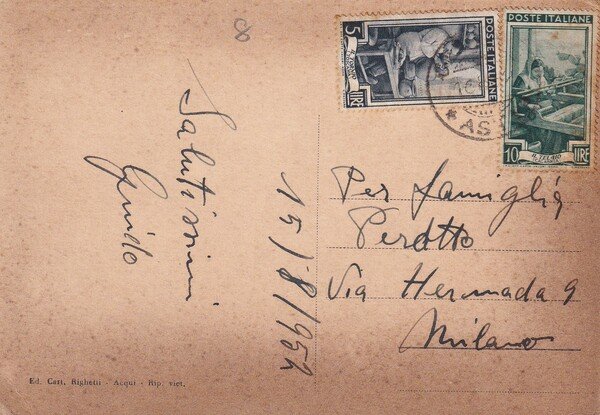 8
Salutissimi
Guido
15/8/952
Per famiglia
Perotto
Via Hermada 9
Milano
5
LIRE
POSTE ITALIANE
POSTE ITALIANE
10
LIRE
AS
Ed. Cart. Righetti - Acqui - Rip. viet.